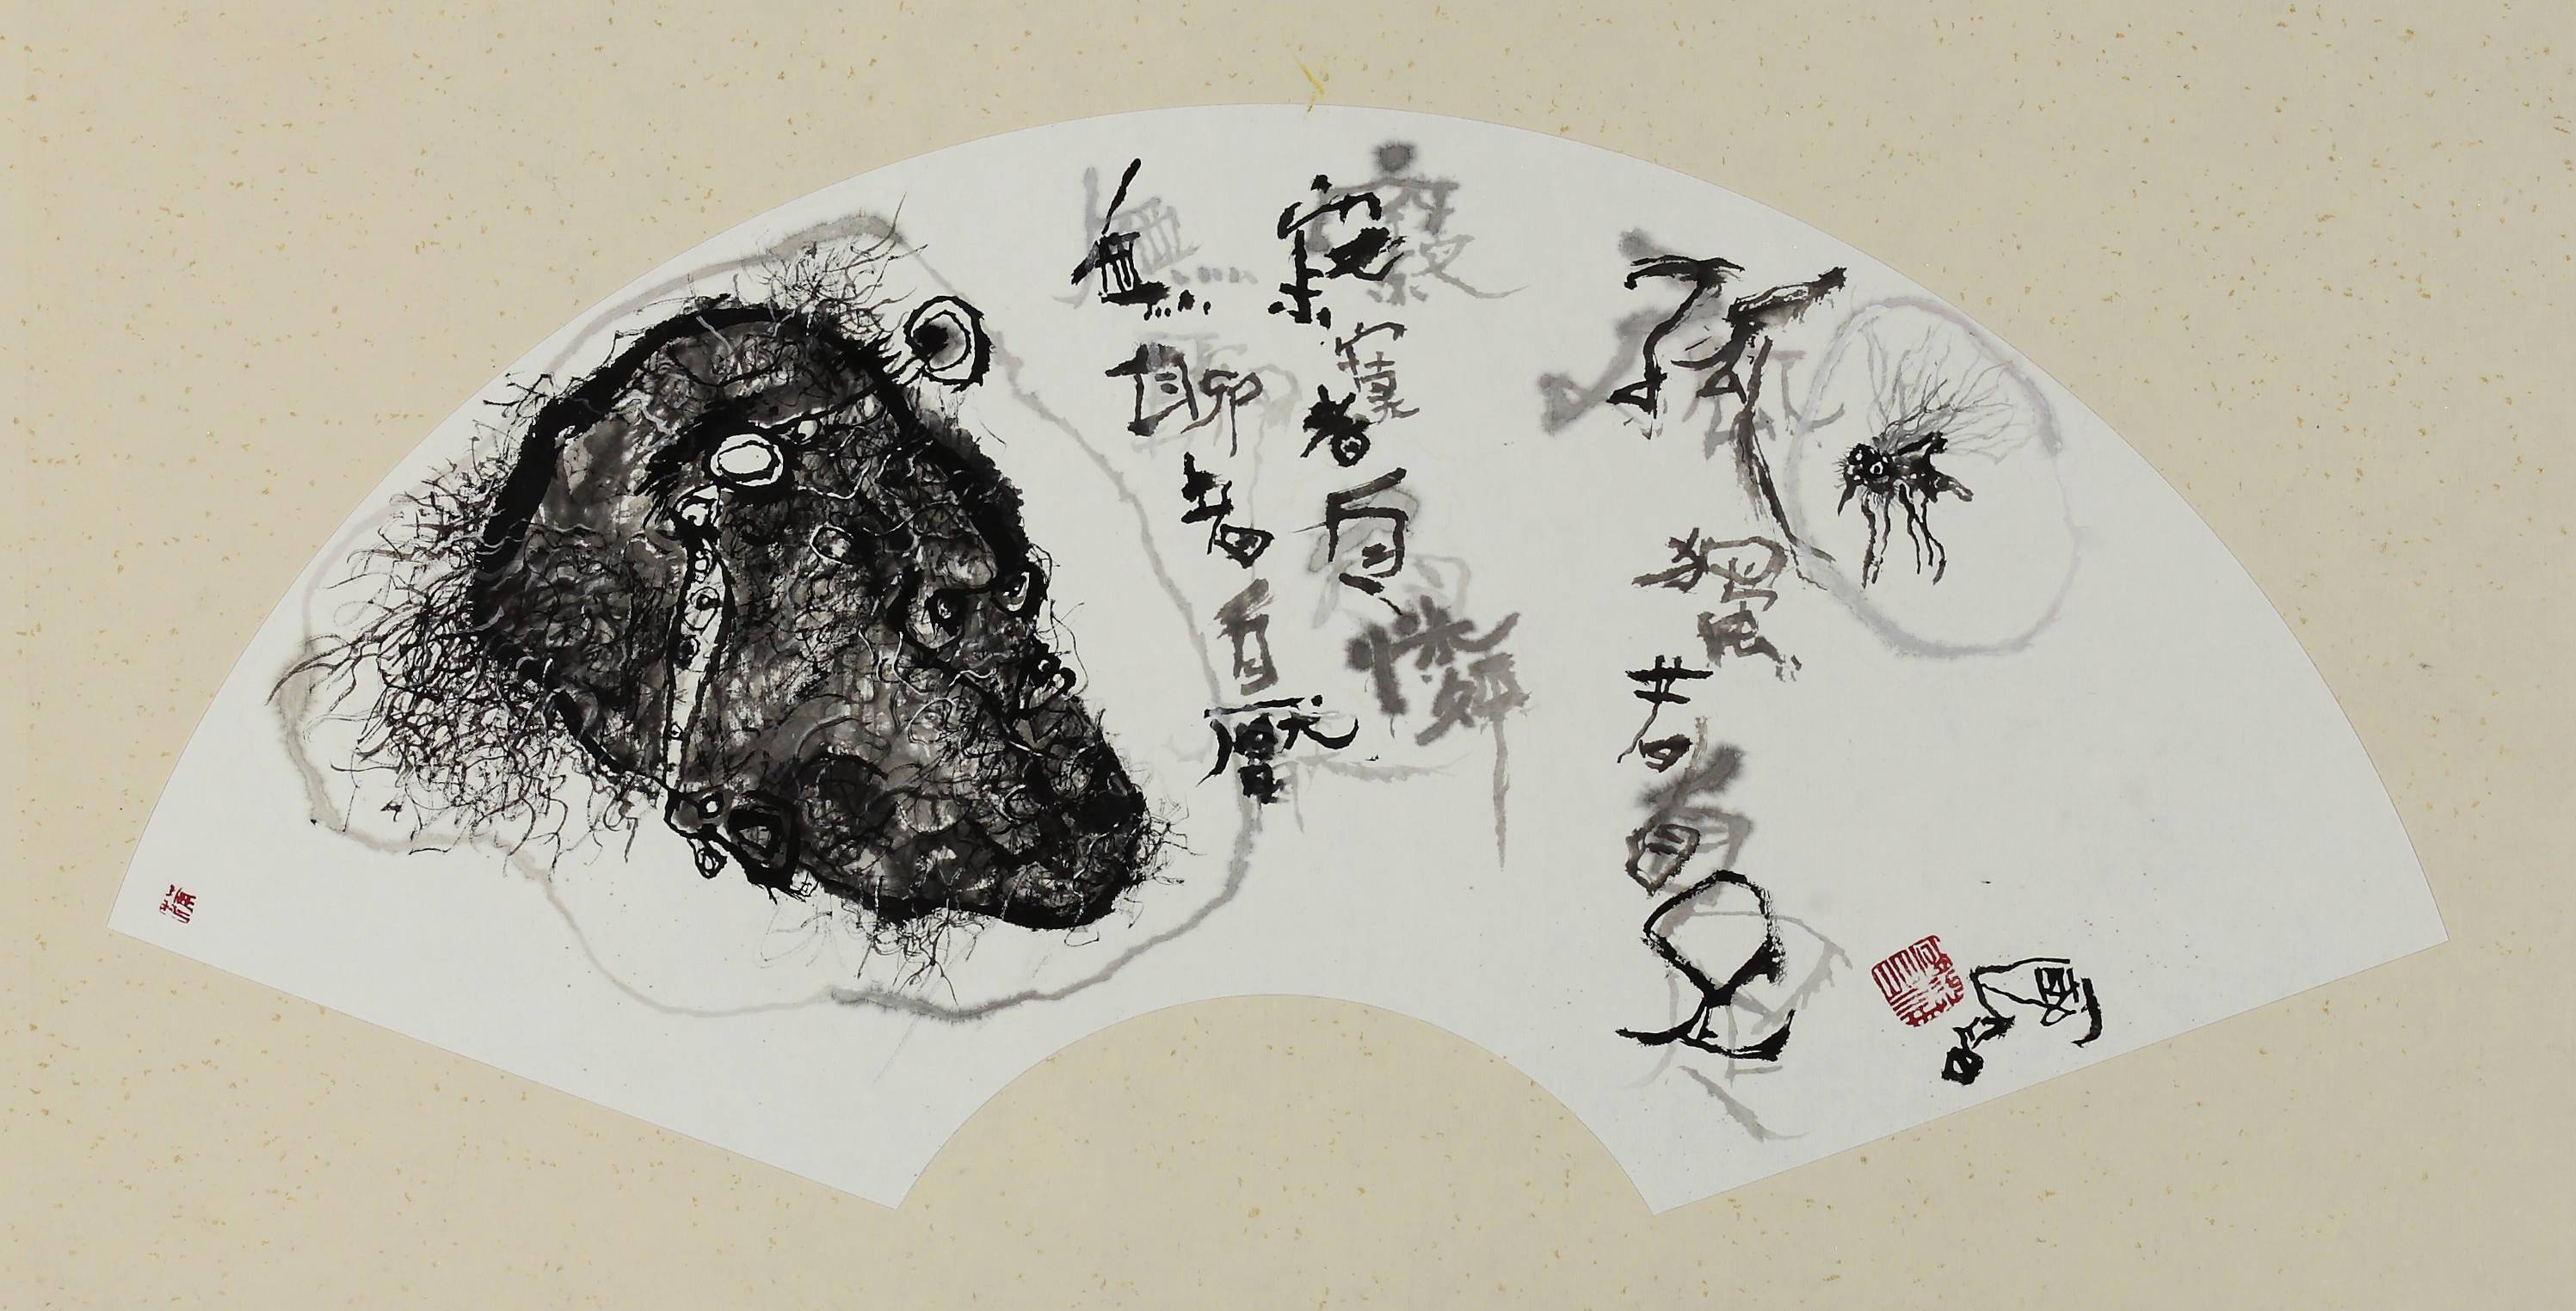 孤獨者自足
寂寞者自憐
無聊者自厭